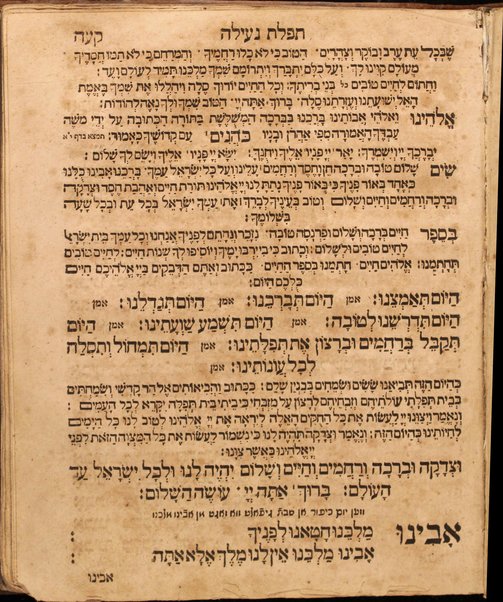 תפלת נעילה קעה
שבכל עת ערב ובוקר וצהרים: הטוב כי לא כלו רחמיך והמרחם כי לא תמו חסדיך
מעולם קוינו לך: ועל כלם יתברך ויתרומם שמך מלכנו תמיד לעולם ועד:
וחתום לחיים טובים כל בני בריתך: וכל החיים יודוך סלה ויהללו את שמך באמת
האל ישועתנו ועזרתנו סלה: ברוך אתה יי הטוב שמך ולך נאה להודות:
אלהינו ואלהי אבותינו ברכנו בברכה המשלשת בתורה הכתובה על ידי משה
עבדך האמורה מפי אהרן ובניו כהנים עם קדושיך כאמור:
יברכך יי וישמרך: יאר יי פניו אליך ויחנך: ישא יי פניו אליך וישם לך שלום:
שים שלום טובה וברכה חן וחסד ורחמים עלינו ועל כל ישראל עמך: ברכנו אבינו כלנו
כאחד באור פניך כי באור פניך נתת לנו יי אלהינו תורת חיים ואהבת חסד וצדקה
וברכה ורחמים וחיים ושלום וטוב בעיניך לברך את עמך ישראל בכל עת ובכל שעה
בשלומך:
בספר חיים ברכה ושלום ופרנסה טובה נזכר ונחתם לפניך אנחנו וכל עמך בית ישראל
לחיים טובים ולשלום: וכתוב כי בי ירבו ימיך ויוסיפו לך שנות חיים: לחיים טובים
תחתמנו: אלהים חיים חתמנו בספר החיים ככתוב ואתם הדבקים ביי אלהיכם חיים
כלכם היום:
היום תאמצנו: אמן היום תברכנו: אמן היום תגדלנו: אמן
היום תדרשנו לטובה: אמן היום תשמע שועתינו: אמן היום
תקבל ברחמים וברצון את תפלתינו: אמן היום תמחול ותסלח
לכל עונותינו: אמן
כהיום הזה תביאנו ששים ושמחים בבנין שלם: ככתוב והביאותים אל הר קדשי ושמחתים
בבית תפלתי עולותיהם וזבחיהם לרצון על מזבחי כי ביתי בית תפלה יקרא לכל העמים:
ונאמר ויצונו יי לעשות את כל החקים האלה ליראה את יי אלהינו לטוב לנו כל הימים
לחיותינו כהיום הזה: ונאמר וצדקה תהיה לנו כי נשמור לעשות את כל המצוה הזאת לפני
יי אלהינו כאשר צונו:
וצדקה וברכה ורחמים וחיים ושלום יהיה לנו ולכל ישראל עד
העולם: ברוך אתה יי עושה השלום:
אבינו מלכנו חטאנו לפניך
אבינו מלכנו אין לנו מלך אלא אתה
אבינו